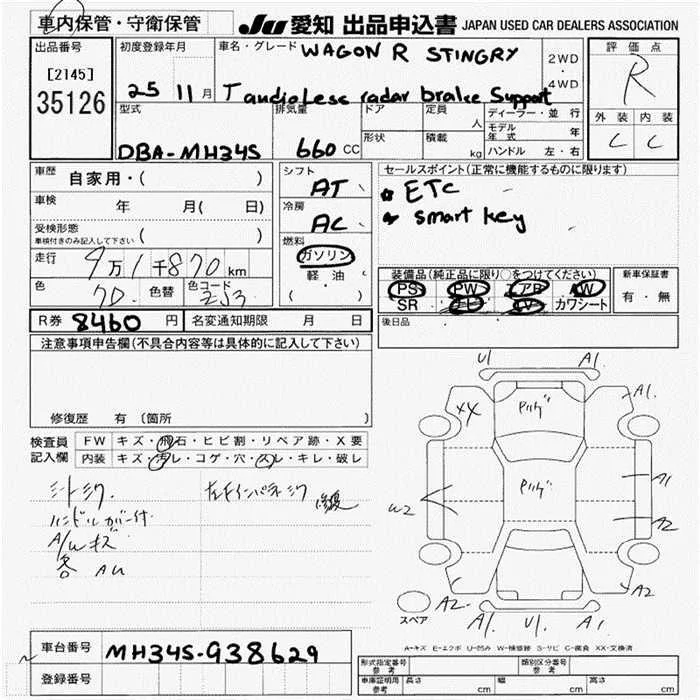 車内保管・守衛保管
JU 愛知 出品申込書 JAPAN USED CAR DEALERS ASSOCIATION
出品番号
[2145]
35126
初度登録年月
25 11 月
車名・グレード WAGON R STINGRY
T audioLess radar brake Support
2WD
・
4WD
評価点
R
外装 内装
C C
型式
DBA-MH34S
排気量
660 CC
ドア
形状
定員 人
積載 kg
ディーラー・並行
モデル年式 年
ハンドル 左・右
車歴 自家用・( )
車検 年 月( 日)
受検形態
車検付きのみ記入して下さい ( )
走行 9万1千870km
色 色替 色コード ZJ3
R券 8460 円 名変通知期限 月 日
シフト
AT
冷房
AC
燃料
ガソリン
軽油
( )
セールスポイント(正常に機能するものに限ります)
ETC
smart key
装備品(純正品に限り○をつけてください)
PS PW エアB AW
SR ナビ TV カワシート
新車保証書
有・無
後日品
注意事項申告欄(不具合内容等は具体的に記入して下さい)
修復歴 有〔箇所 〕
検査員記入欄
FW キズ・飛石・ヒビ割・リペア跡・X要
内装 キズ・汚レ・コゲ・穴・スレ・キレ・破レ
シートシワ.
ハンドルカバー付
A/Wキズ
各 AU
U1 A1.
XX
A1.
W2
A1
A2
A2- A2
A1. U1. A1
スペア
A-キズ E-エクボ U-凹み W-補修跡 S-サビ C-腐食 XX-交換済
車台番号 MH34S-938629
登録番号
形式指定番号 参考 類別区分番号 参考
車庫証明用 参考 長さ cm 幅 cm 高さ cm